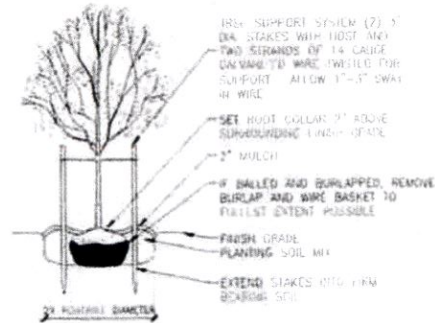 TREE SUPPORT SYSTEM (2) 2"
DIA. STAKES WITH HOSE AND
TWO STRANDS OF 14 GAUGE
GALVANIZED WIRE TWISTED FOR
SUPPORT ALLOW 1"-3" SWAY
IN WIRE
SET ROOT COLLAR 2" ABOVE
SURROUNDING FINISH GRADE
2" MULCH
IF BALLED AND BURLAPPED, REMOVE
BURLAP AND WIRE BASKET TO
FULLEST EXTENT POSSIBLE
FINISH GRADE
PLANTING SOIL MIX
EXTEND STAKES INTO FIRM
BEARING SOIL
2X ROOTBALL DIAMETER